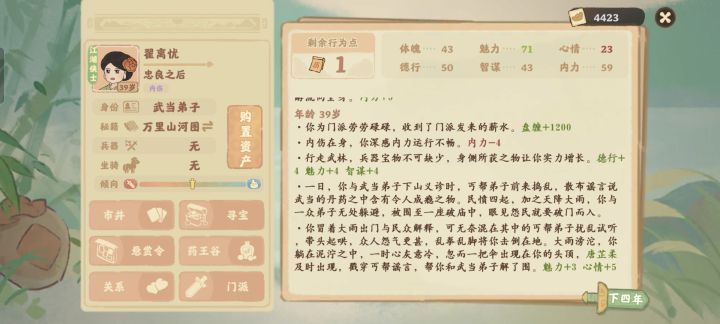 4423
江湖侠士
39岁
翟离忧
忠良之后
内伤
身份
武当弟子
秘籍
万里山河图
兵器
无
坐骑
无
倾向
购置资产
市井
寻宝
悬赏令
药王谷
关系
门派
剩余行为点
1
体魄 43
魅力 71
心情 23
德行 50
智谋 43
内力 59
年龄 39岁
·你为门派劳劳碌碌，收到了门派发来的薪水。盘缠+1200
·内伤在身，你深感内力运行不畅。内力-4
·行走武林，兵器宝物不可缺少，身侧所获之物让你实力增长。德行+
4 魅力+4 智谋+4
·一日，你与武当弟子下山义诊时，丐帮弟子前来捣乱，散布谣言说
武当的丹药之中含有令人成瘾之物。民愤四起，加之天降大雨，你与
一众弟子无处躲避，被围至一座破庙中，眼见怨民就要破门而入。
·你冒着大雨出门与民众解释，可无奈混在其中的丐帮弟子扰乱试听
，带头起哄，众人怨气更甚，乱拳乱脚将你击倒在地。大雨滂沱，你
躺在泥泞之中，一时心灰意冷，忽而一把伞出现在你的头顶，唐芷柔
及时出现，戳穿丐帮谣言，帮你和武当弟子解了围。魅力+3 心情+5
下四年